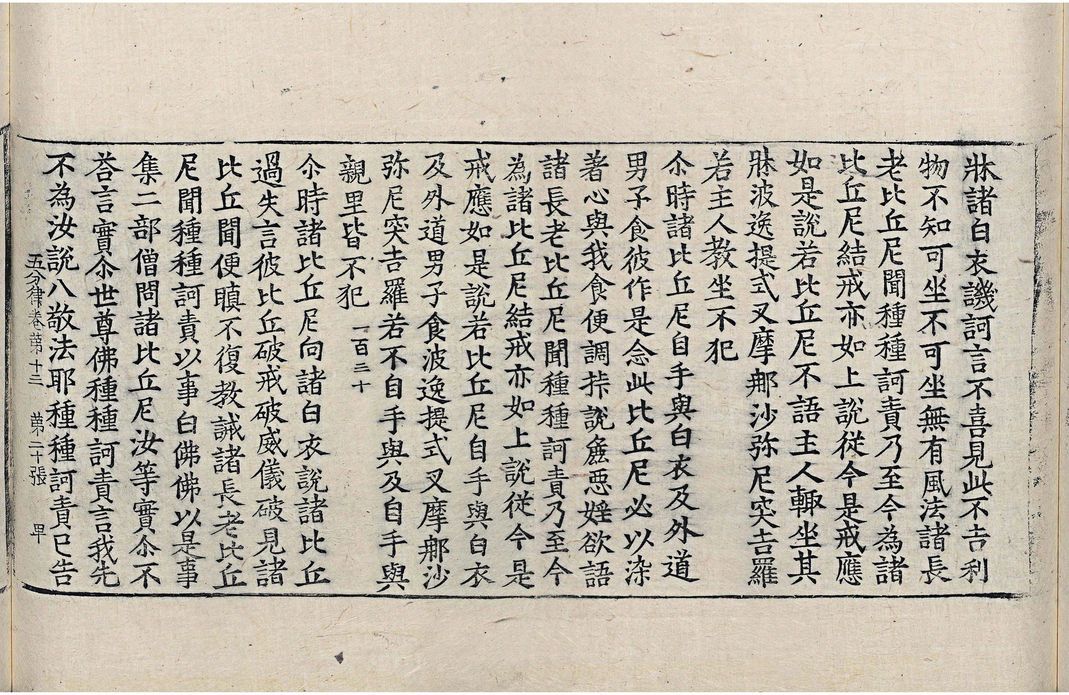 牀諸白衣譏訶言不喜見此不吉利
物不知可坐不可坐無有風法諸長
老比丘尼聞種種訶責乃至今為諸
比丘尼結戒亦如上說從今是戒應
如是說若比丘尼不語主人輙坐其
牀波逸提式叉摩那沙弥尼突吉羅
若主人教坐不犯
尒時諸比丘尼自手與白衣及外道
男子食彼作是念此比丘尼必以染
著心與我食便調𢪛說麁惡婬欲語
諸長老比丘尼聞種種訶責乃至今
為諸比丘尼結戒亦如上說從今是
戒應如是說若比丘尼自手與白衣
及外道男子食波逸提式叉摩那沙
弥尼突吉羅若不自手與及自手與
親里皆不犯 一百三十
尒時諸比丘尼向諸白衣說諸比丘
過失言彼比丘破戒破威儀破見諸
比丘聞便瞋不復教誡諸長老比丘
尼聞種種訶責以事白佛佛以是事
集二部僧問諸比丘尼汝等實尒不
荅言實尒世尊佛種種訶責言我先
不為汝說八敬法耶種種訶責已告
五分律卷第十三 第二十張 早